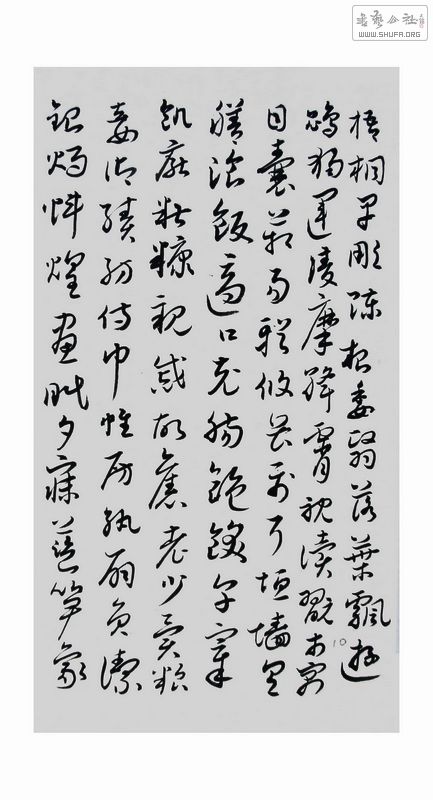 書藝公社
WWW.SHUFA.ORG
梧桐早彫陳根委翳落葉飄遊
鵾獨運凌摩絳霄耽讀翫市寓
目囊箱易輶攸畏属耳垣墻具
膳飡飯適口充腸飽飫亨宰
飢厭糟糠親戚故舊老少異糧
妾御績紡侍巾帷房紈扇員潔
銀燭煒煌晝眠夕寐藍笋象
10